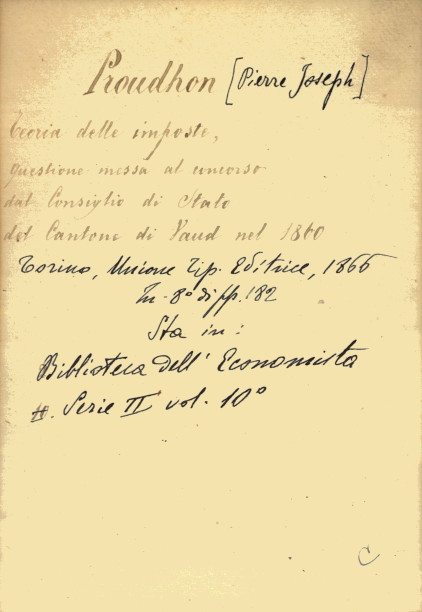 Proudhon [Pierre Joseph]
Teoria delle imposte,
questione messa al concorso
dal Consiglio di Stato
del Cantone di Vaud nel 1860
Torino, Unione Tip. Editrice, 1866
In-8° di pp. 182
Sta in:
Biblioteca dell' Economista
Serie II vol. 10°
C